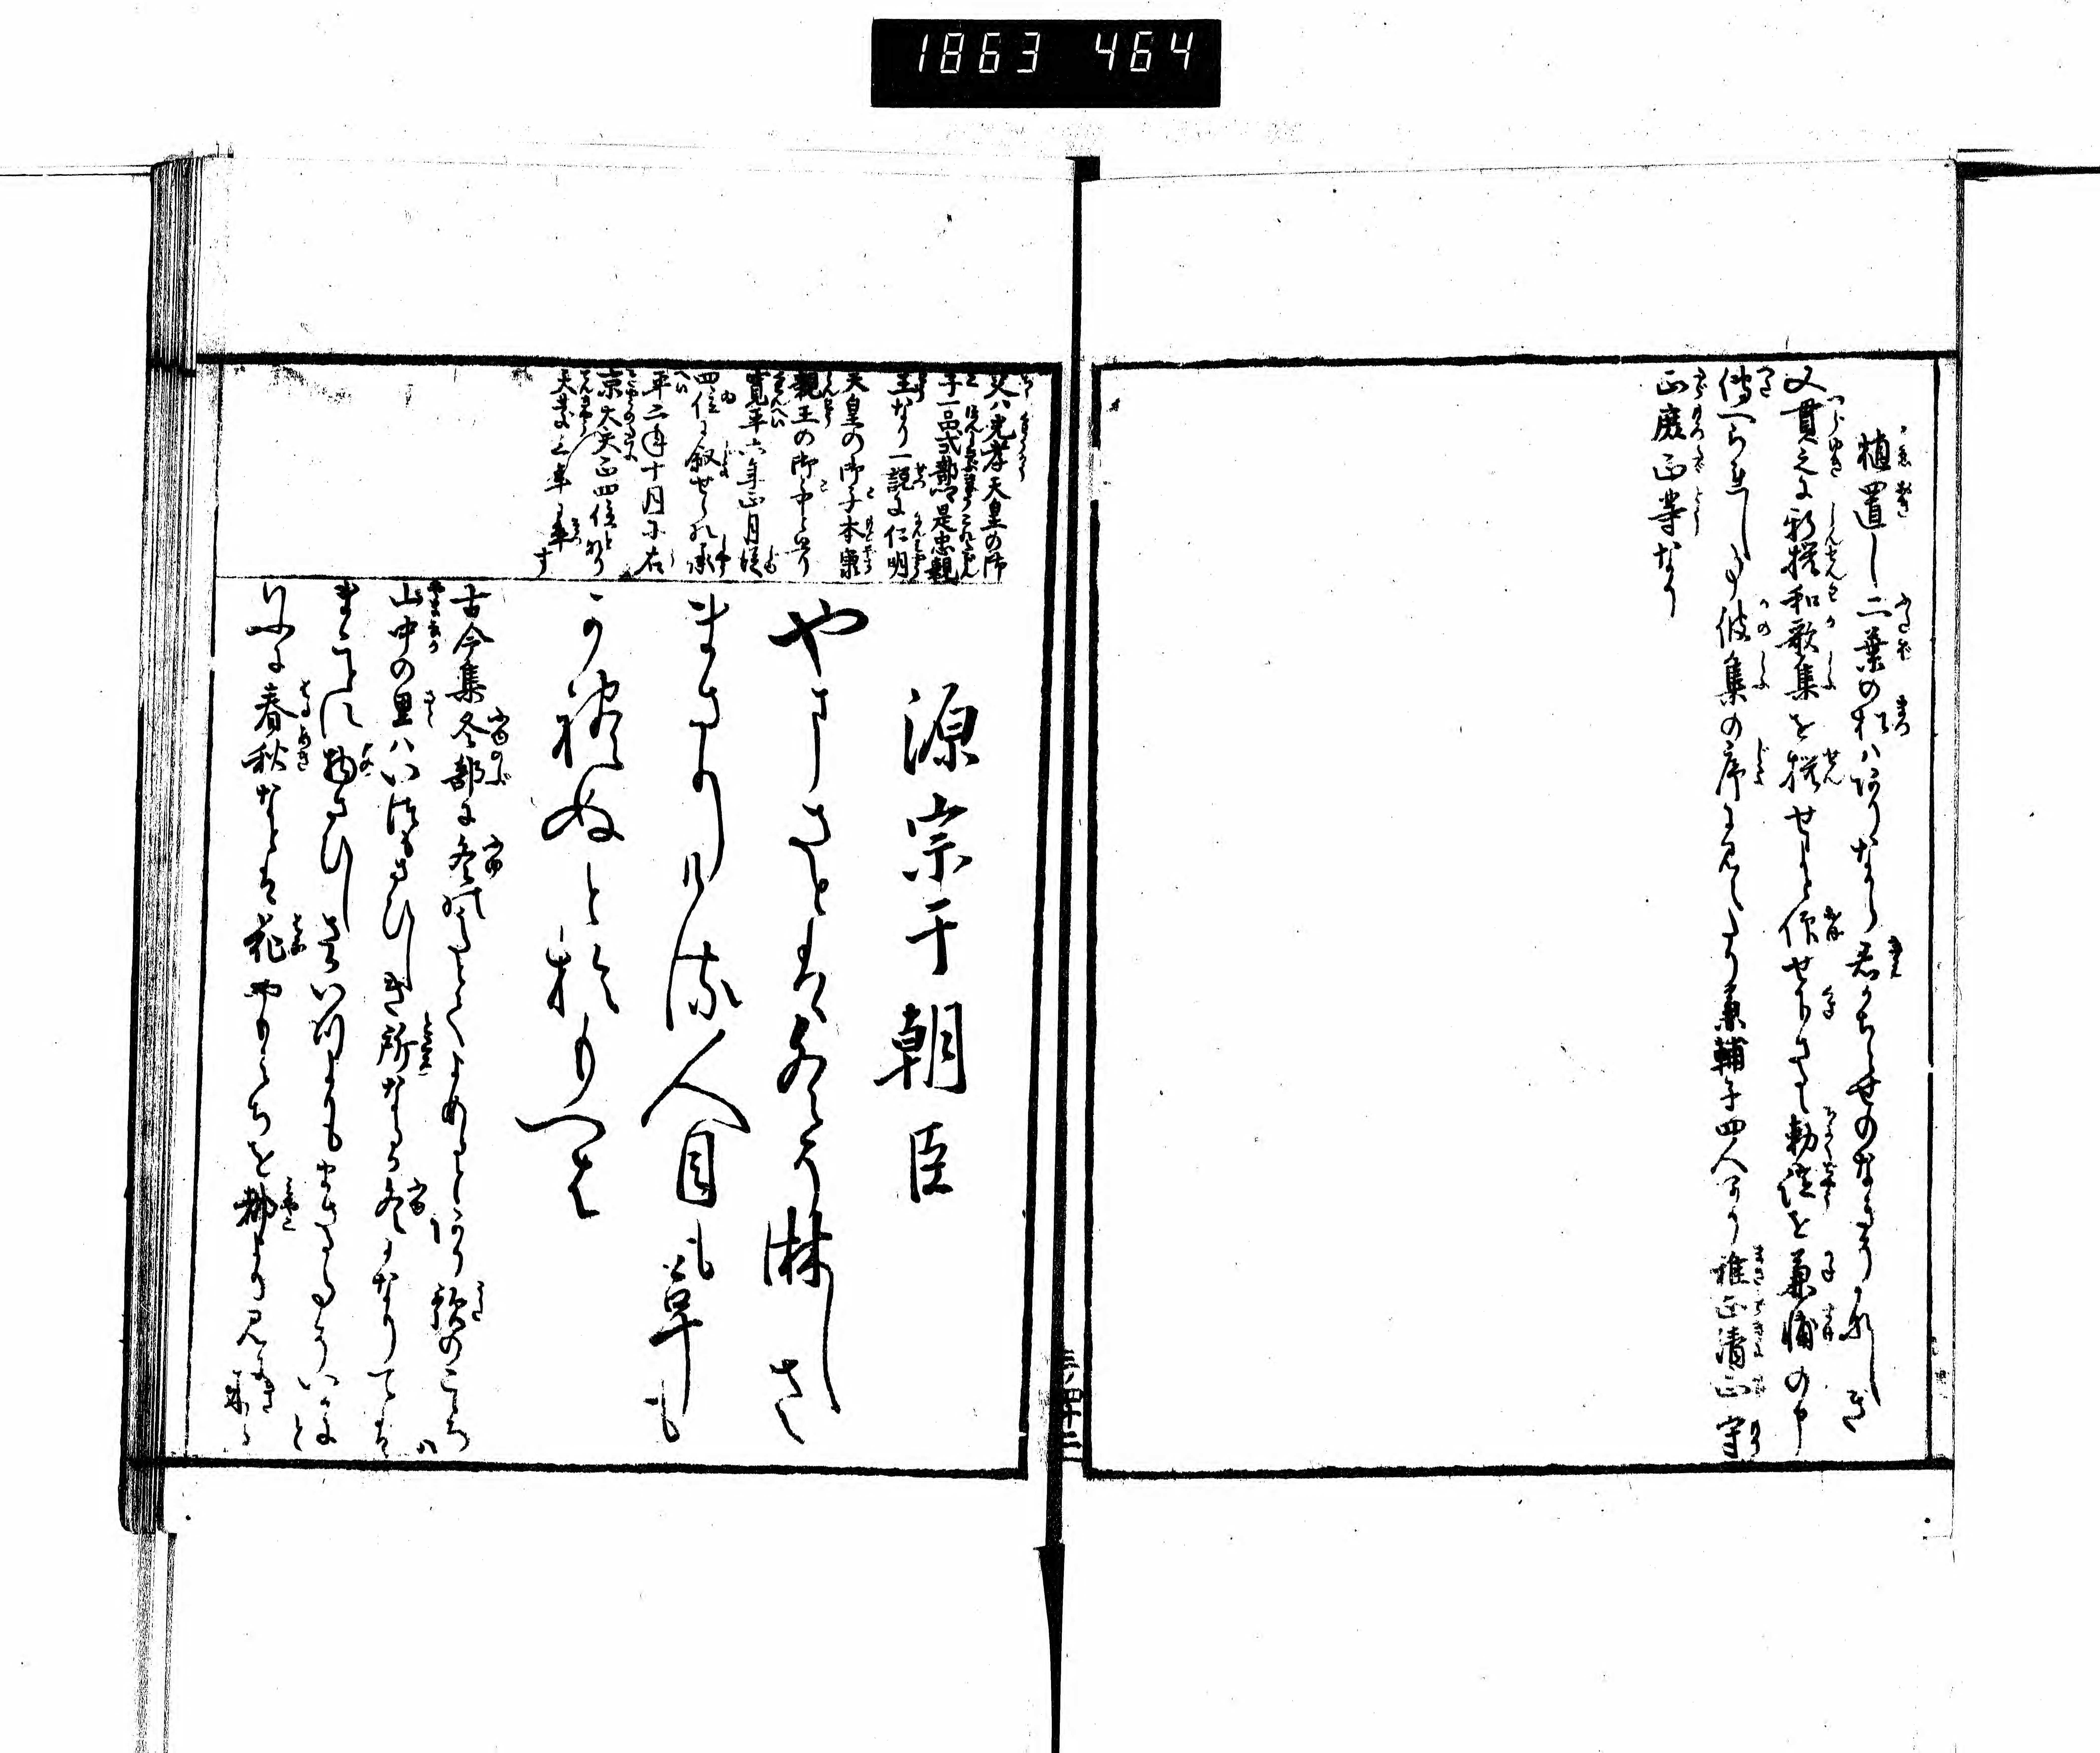 1863 464
植置し二葉の松はありなから君かちとせのなきそかなしき
又貫之に新撰和歌集を撰せよと仰せ下さるゝ勅諚を兼輔の中
傳へられし事彼集の序に見えたり兼輔子四人あり雅正清正守
正庶正等なり
父ハ光孝天皇の御
子一品式部卿是忠親
王なり一説に仁明
天皇の御子本康
親王の御子と畧り
寛平六年正月従
四位に叙せられ承
平二年十月に右
京大夫正四位と
天慶二年卒す
源宗于朝臣
やまさとは冬そ淋しさ
まさりける人目も草も
かれぬとおもへは
古今集冬部に冬哥とてよめるとあり歌のこゝろハ
山中の里ハいつもさひしき所なるか冬になりては
まことに物さひしさかいつよりもまさるそいかにと
いふに春秋なとは花やもみちを都より見に来る
三ノ四十二